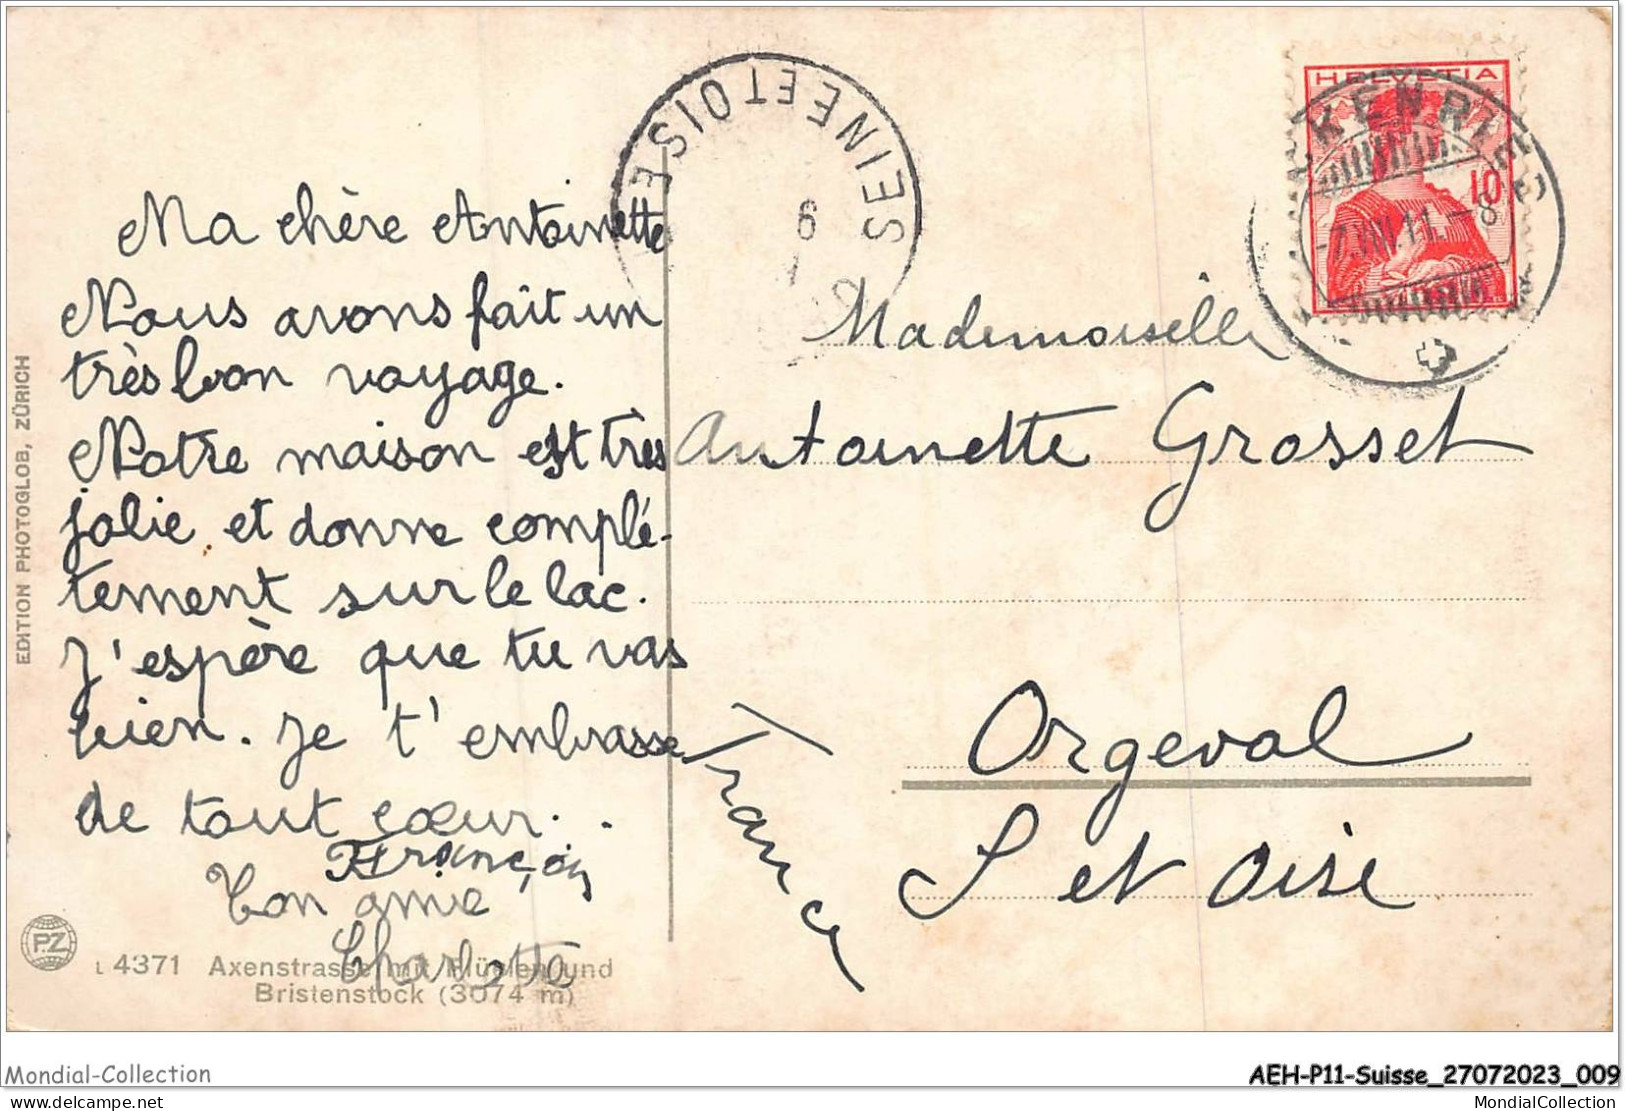 Ma chère Antoinette
Nous avons fait un
très bon voyage.
Notre maison est très
jolie et donne complé-
tement sur le lac.
J'espère que tu vas
bien. Je t'embrasse
de tout cœur.
François
Ton amie
Charlotte
L 4371 Axenstrasse mit Flüelen und
Bristenstock (3074 m)
PZ
EDITION PHOTOGLOB, ZÜRICH
SEINE ET OISE
HELVETIA
10
CKENRIED
-7.VIII.11.-8
Mademoiselle
Antoinette Grosset
Orgeval
S et Oise
France
Mondial-Collection
AEH-P11-Suisse_27072023_009
delcampe.net
MondialCollection